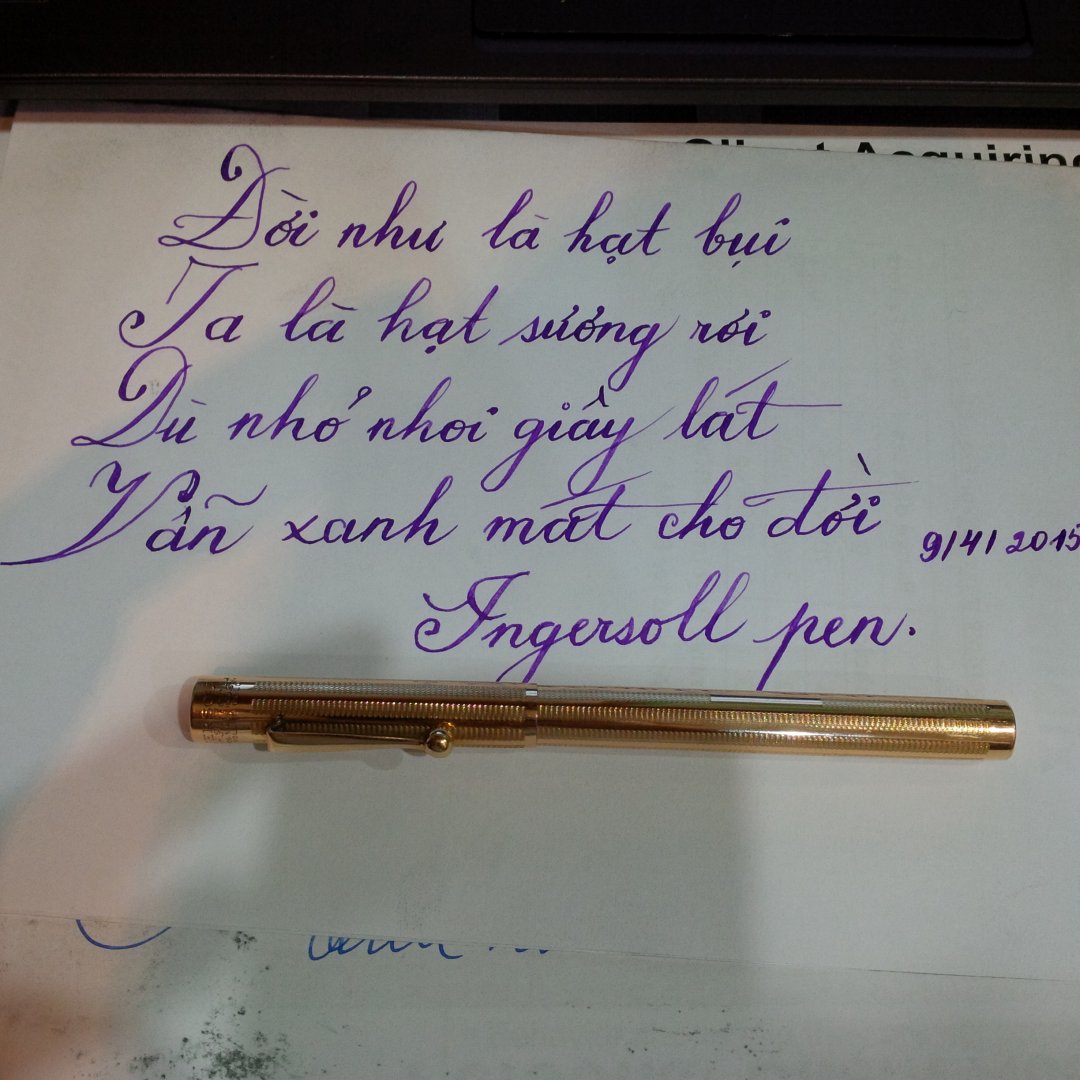 Client Acquiring
Đời như là hạt bụi
Ta là hạt sương rơi
Dù nhỏ nhoi giây lát
Vẫn xanh mát cho đời
9/4/2015
Ingersoll pen.